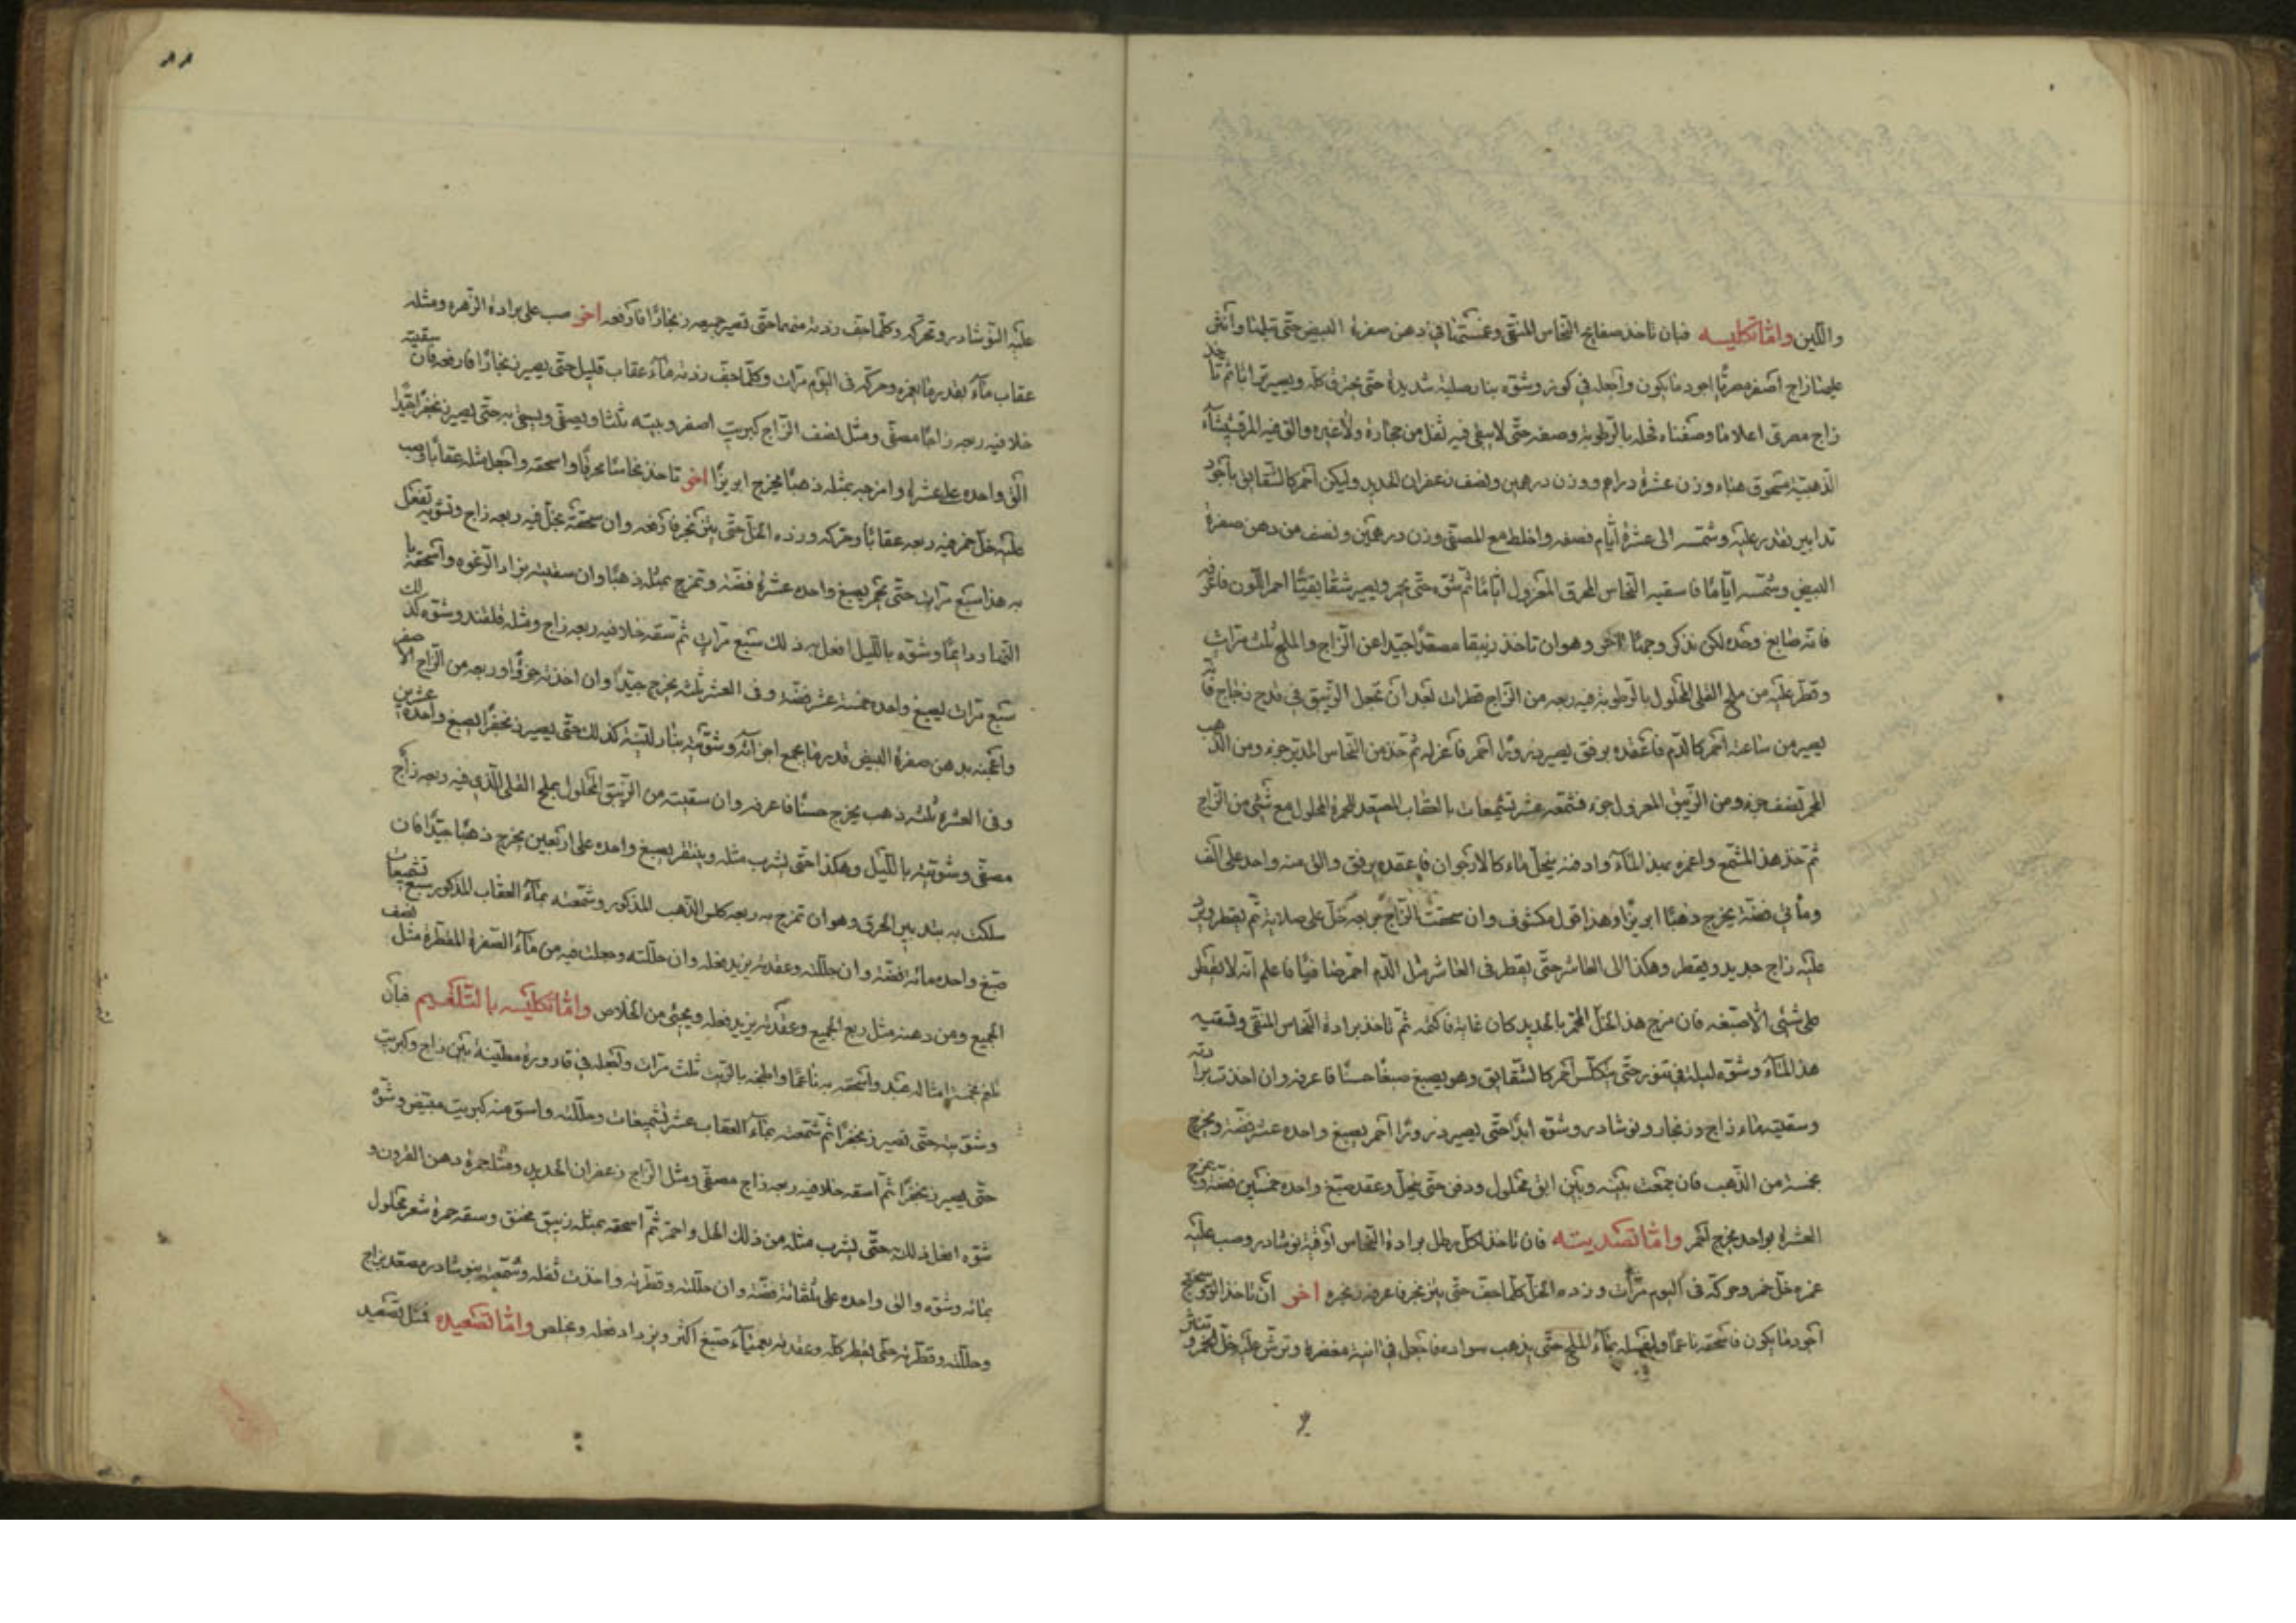 واللين واما تكليسه فبان تاخذ صفايح النحاس المنقى وغمستها في دهن صفرة البيض حتى تبلها وانثر
عليها زاج اصفر مصريا اجود ما يكون واجعله في كوز وشوه بنار صلبة شديدة حتى يحترق كله ويصير ترابا ثم تاخذ
زاج مصرى اعلا ما وصفناه فحله بالرطوبة وصفه حتى لا يبقى فيه ثفل من حجارة ولا غيره والق فيه المرقشيشا
الذهبية مسحوق هباء وزن عشرة دراهم ووزن درهمين ونصف زعفران الحديد وليكن احمر كالشقايق باجود
تدابير نقدر عليه وشمسه الى عشرة ايام فصفه واخلط مع المصفى وزن درهمين ونصف من دهن صفرة
البيض وشمسه اياما فاسقيه النحاس المحرق المعزول اياما ثم شوه حتى يحمر ويصير شقايقيا احمر اللون فاعرفه
فانه صابغ وحده لكن نذكر وجها آخر وهو ان تاخذ زيبقا مصعدا جيدا عن الزاج والملح ثلث مرات
وقطر عليه من ملح القلى المحلول بالرطوبة فيه ربعه من الزاج قطرات بعد ان تجعل الزيبق في قدح زجاج فانه
يصير من ساعته احمر كالدم فاعقده برفق يصير ذرورا احمر فاعزله ثم خذ من النحاس المدبر جزء ومن الذهب
المحمر نصف جزء ومن الزيبق المعزول جزء فشمعه عشر تشميعات بالعقاب المصعد للحمرة المحلول مع شئ من الزاج
ثم خذ هذا المشمع واغمره بهذا الماء وادفنه ينحل ماء كالارجوان فاعقده برفق والق منه واحد على الف
ومأتي فضة يخرج ذهبا ابريزا وهذا قول مكشوف وان سحقت الزاج مع خل على صلاية ثم يقطر ويرد
عليه زاج جديد ويقطر وهكذا الى العاشر حتى يقطر في العاشر مثل الدم احمر صافيا فاعلم انه لا يقطر
على شئ الا صبغه فان مزج هذا الخل المحمر بالحديد كان غاية فاكتمه ثم تاخذ برادة النحاس المنقى وتسقيه
هذا الماء وشوه ليلة في تنور حتى يتكلس احمر كالشقايق وهو يصبغ صبغا حسنا فاعرفه وان اخذت برادته
وسقيته ماء زاج وزنجار ونوشادر وشوه ابدا حتى يصير ذرورا احمر يصبغ واحده عشرة فضة ويخرج
بخمسة من الذهب فان جمعت بينه وبين ابق محلول ودفن حتى ينحل وعقد صبغ واحده خمسين فضة ويمزج
العشرة بواحد يخرج احمر واما تصديته فان تاخذ لكل رطل برادة النحاس اوقية نوشادر وصب عليه
غمره خل خمر وحركه في اليوم مرات وزده الخل كلما جف حتى يتزنجر فاعرفه زنجره اخر ان تاخذ الروسختج
اجود ما يكون فاسحقه ناعما وليغسله بماء الملح حتى يذهب سواده فاجعل في انية مغضرة وترش عليه خل الخمر وتنثر
عليه النوشادر وتحركه وكلما جف زدته منهما حتى تصير جميعه زنجارا فارفعه اخر صب على برادة الزهره ومثله
عقاب ماء بقدر ما يغمره وحركه في اليوم مرات وكلما جف زدته ماء عقاب قليل حتى يصير زنجارا فارفعه فان سقيته
خلا فيه ربعه زاجا مصفى ومثل نصف الزاج كبريت اصفر وبيته ثلثا ويصفى ويسقى به حتى يصير زنجفرا يقينا
الق واحده على عشرة وامزجه بمثله ذهبا يخرج ابريزا اخر تاخذ نحاسا محرقا واسحقه واجعل مثله عقابا وصب
عليه خل خمر فيه ربعه عقابا وحركه وزده الخل حتى يتزنجر فارفعه وان سحقته بخل فيه ربعه زاج وتشويه تفعل
به هذا سبع مرات حتى يحمر يصبغ واحده عشرة فضة وتمزج بمثله ذهبا وان سقيته بزاد الرغوه واسحقه با
النهار دايما وشوه بالليل افعل به ذلك سبع مرات ثم تسقه خلا فيه ربعه زاج ومثله قلقند وشوه كذلك
سبع مرات يصبغ واحده خمسة عشر فضة وفي العشر ثلثه يخرج جيدا وان اخذته جزؤا وربعه من الزاج الاصفر
واعجنه بدهن صفرة البيض قدر ما يجمع اجزائه وشويته بنار لينة كذلك حتى يصير زنجفرا يصبغ واحده عشرين
وفي العشرة ثلثه ذهب يخرج حسنا فاعرفه وان سقيته من الزيبق المحلول بملح القلى الذي فيه ربعه زاج
مصفى وشويته بالليل وهكذا حتى يشرب مثله ويتنقر يصبغ واحده على اربعين يخرج ذهبا جيدا فان
سلكت به تدبير الحرق وهو ان تمزج به ربعه كلس الذهب المذكور وشمعته بماء العقاب المذكور سبع تشميعات
صبغ واحده مائه الفضة وان حللته وعقدته يزيد فعله وان حللته وجعلت فيه من ماء الصفرة المقطرة مثل نصف
الجميع ومن دهنه مثل ربع الجميع وعقدته يزيد فعله ويجيئ من الخلاص واما تكليسه بالتلغيم فبان
تلغم بخمسة امثاله عبد واسحقه به ناعما واطبخه بالزيت ثلث مرات واجعله في قارورة مطينة بين زاج وكبريت
وشويته حتى تصير زنجفرا ثم شمعته بماء العقاب عشر تشميعات وحللته واسق منه كبريت مبيض وشوه
حتى يصير زنجفرا ثم اسقه خلا فيه ربعه زاج مصفى ومثل الزاج زعفران الحديد ومثله حمرة دهن القرون و
شوه افعل ذلك حتى يشرب مثله من ذلك الخل واحمر ثم اسحقه بمثله زيبق مخنق وسقه حمرة شعر محلول
بمائه وشوه والق واحده على ثلثمائة فضة وان حللته وقطرته واخذت ثفله وشمعته بنوشادر مصعد بزاج
وحللته وقطرته حتى يقطر كله وعقدته بعمياء صبغ اكثر ويزداد فعله وخلص واما تصعيده فمثل تصعيد